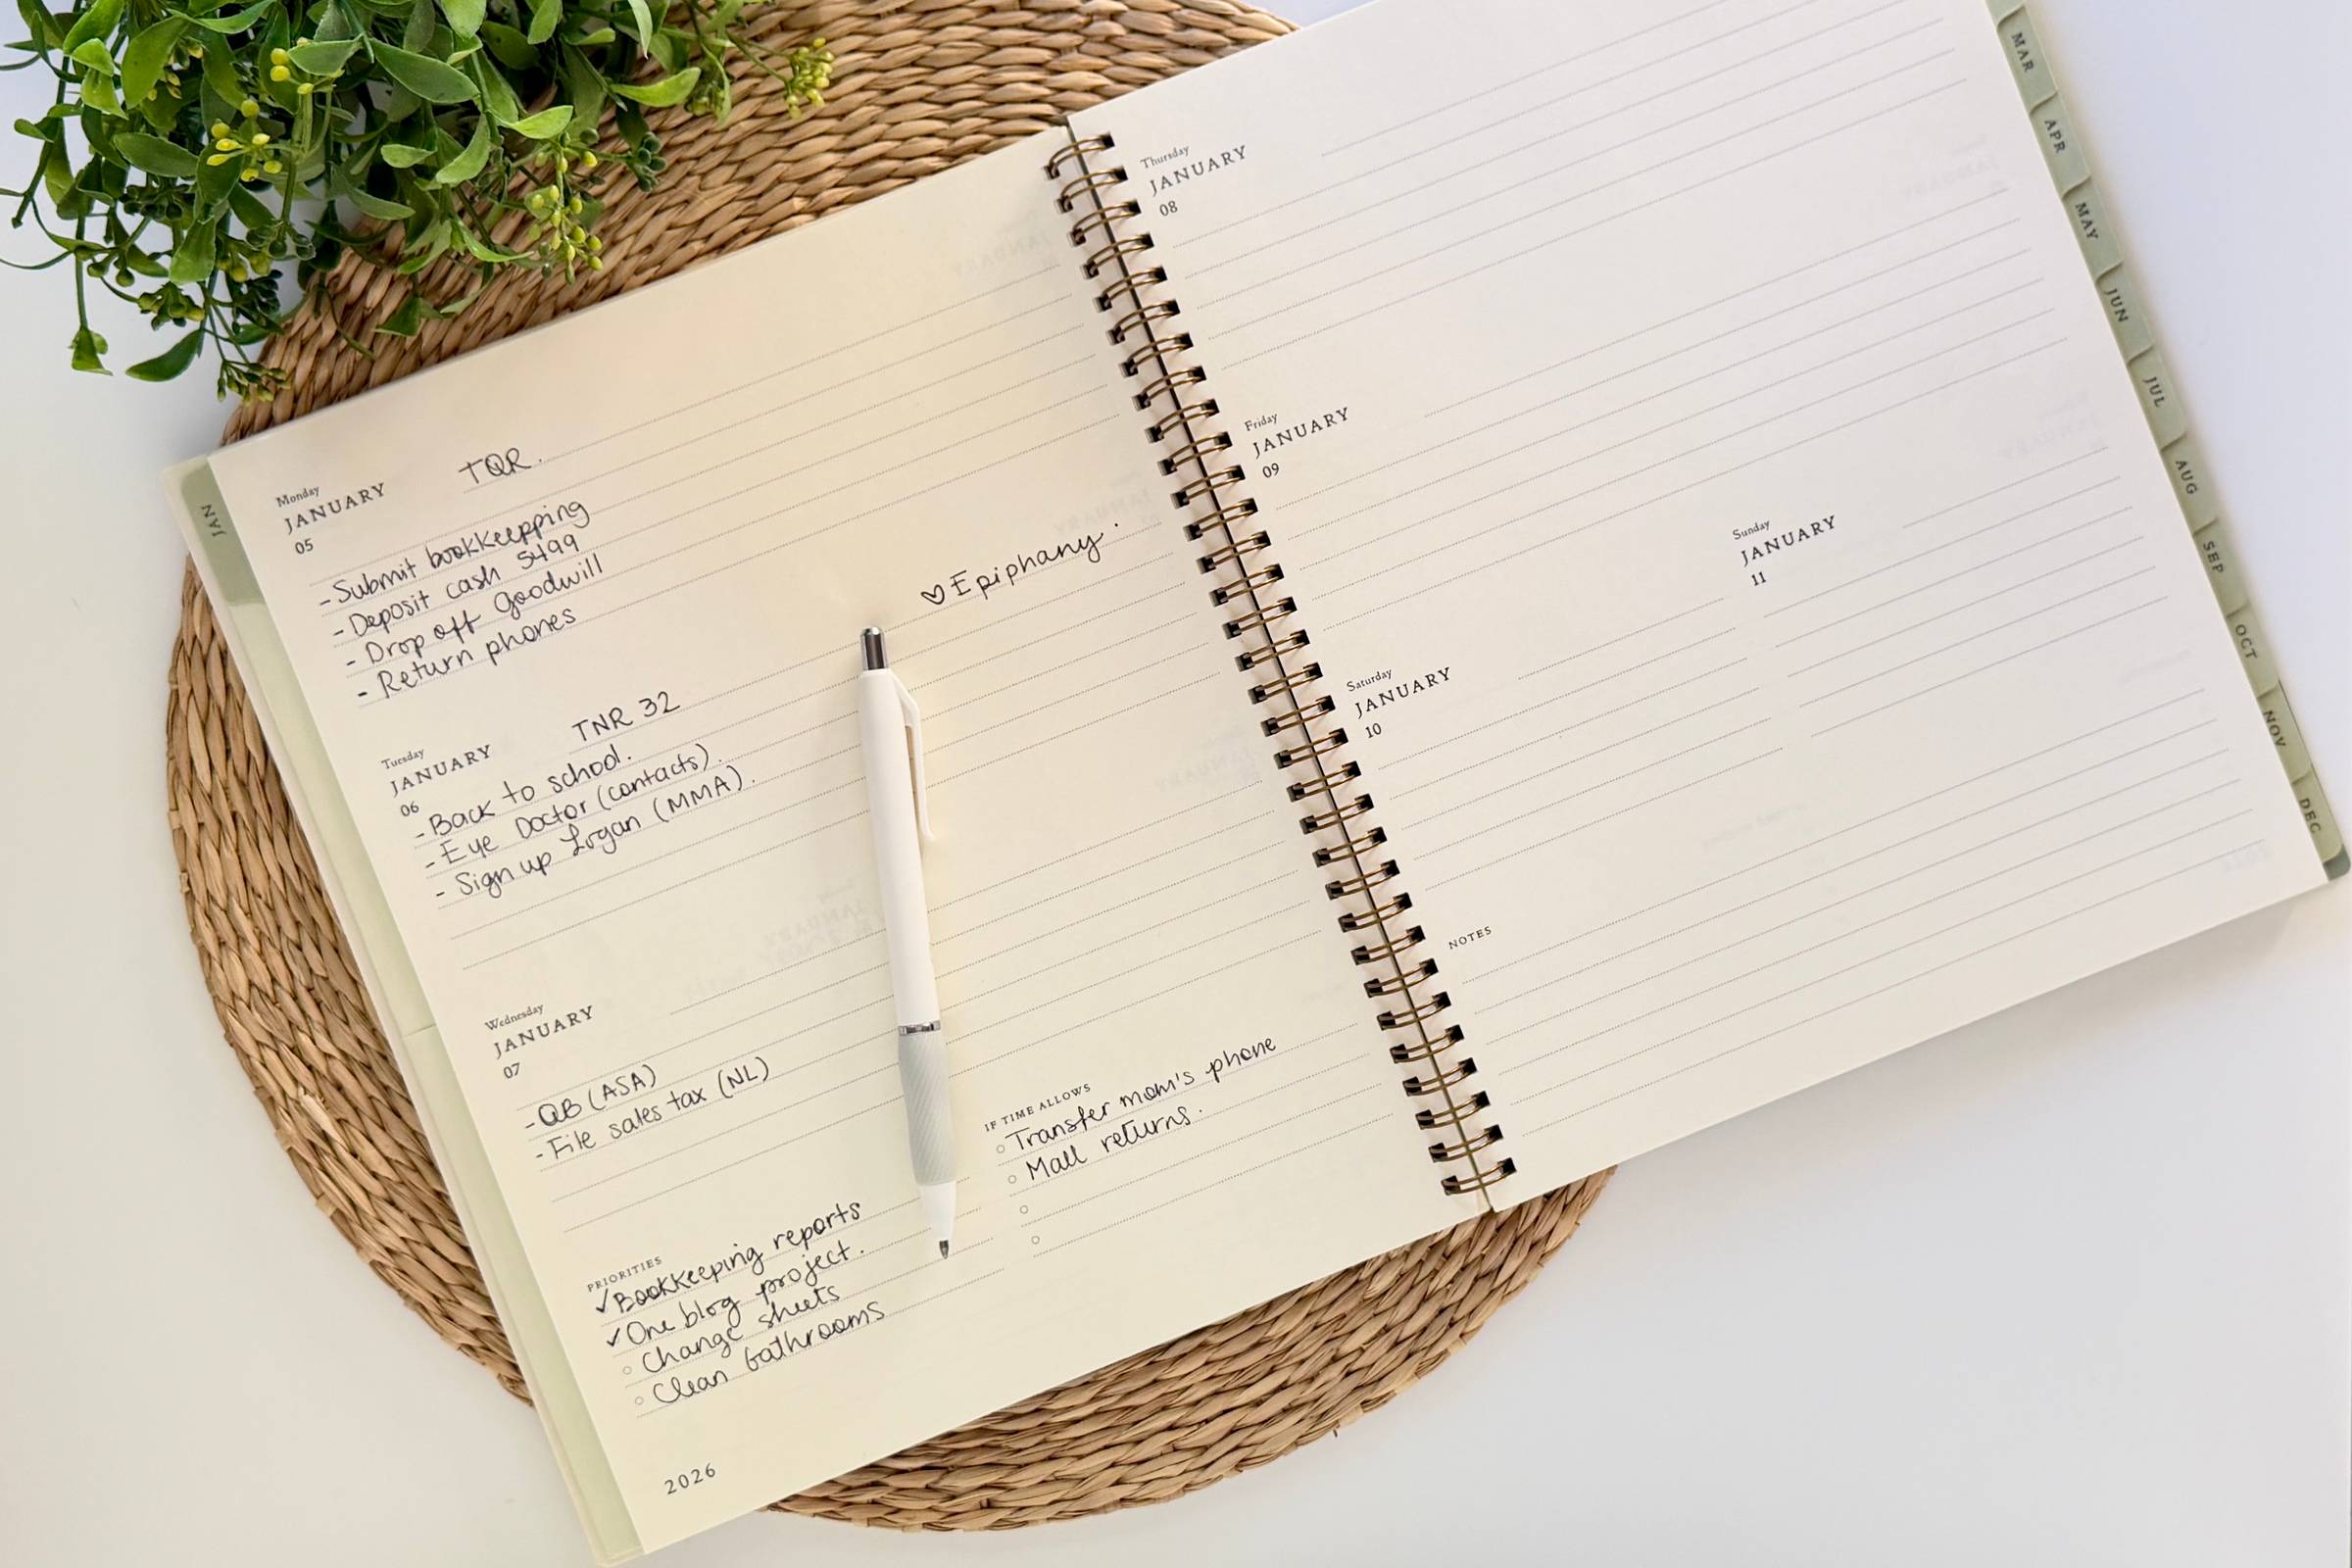 Monday
JANUARY
05
TQR.
- Submit bookkeepping
- Deposit cash 5499
- Drop off goodwill
- Return phones
Tuesday
JANUARY
06
TNR 32
♡ Epiphany.
- Back to school.
- Eye Doctor (contacts).
- Sign up Logan (MMA).
Wednesday
JANUARY
07
- QB (ASA)
- File sales tax (NL)
PRIORITIES
✓ Bookkeeping reports
✓ One blog project.
Change sheets
Clean bathrooms
IF TIME ALLOWS
Transfer mom's phone
Mall returns.
2026
Thursday
JANUARY
08
Friday
JANUARY
09
Saturday
JANUARY
10
Sunday
JANUARY
11
NOTES
JAN
MAR
APR
MAY
JUN
JUL
AUG
SEP
OCT
NOV
DEC